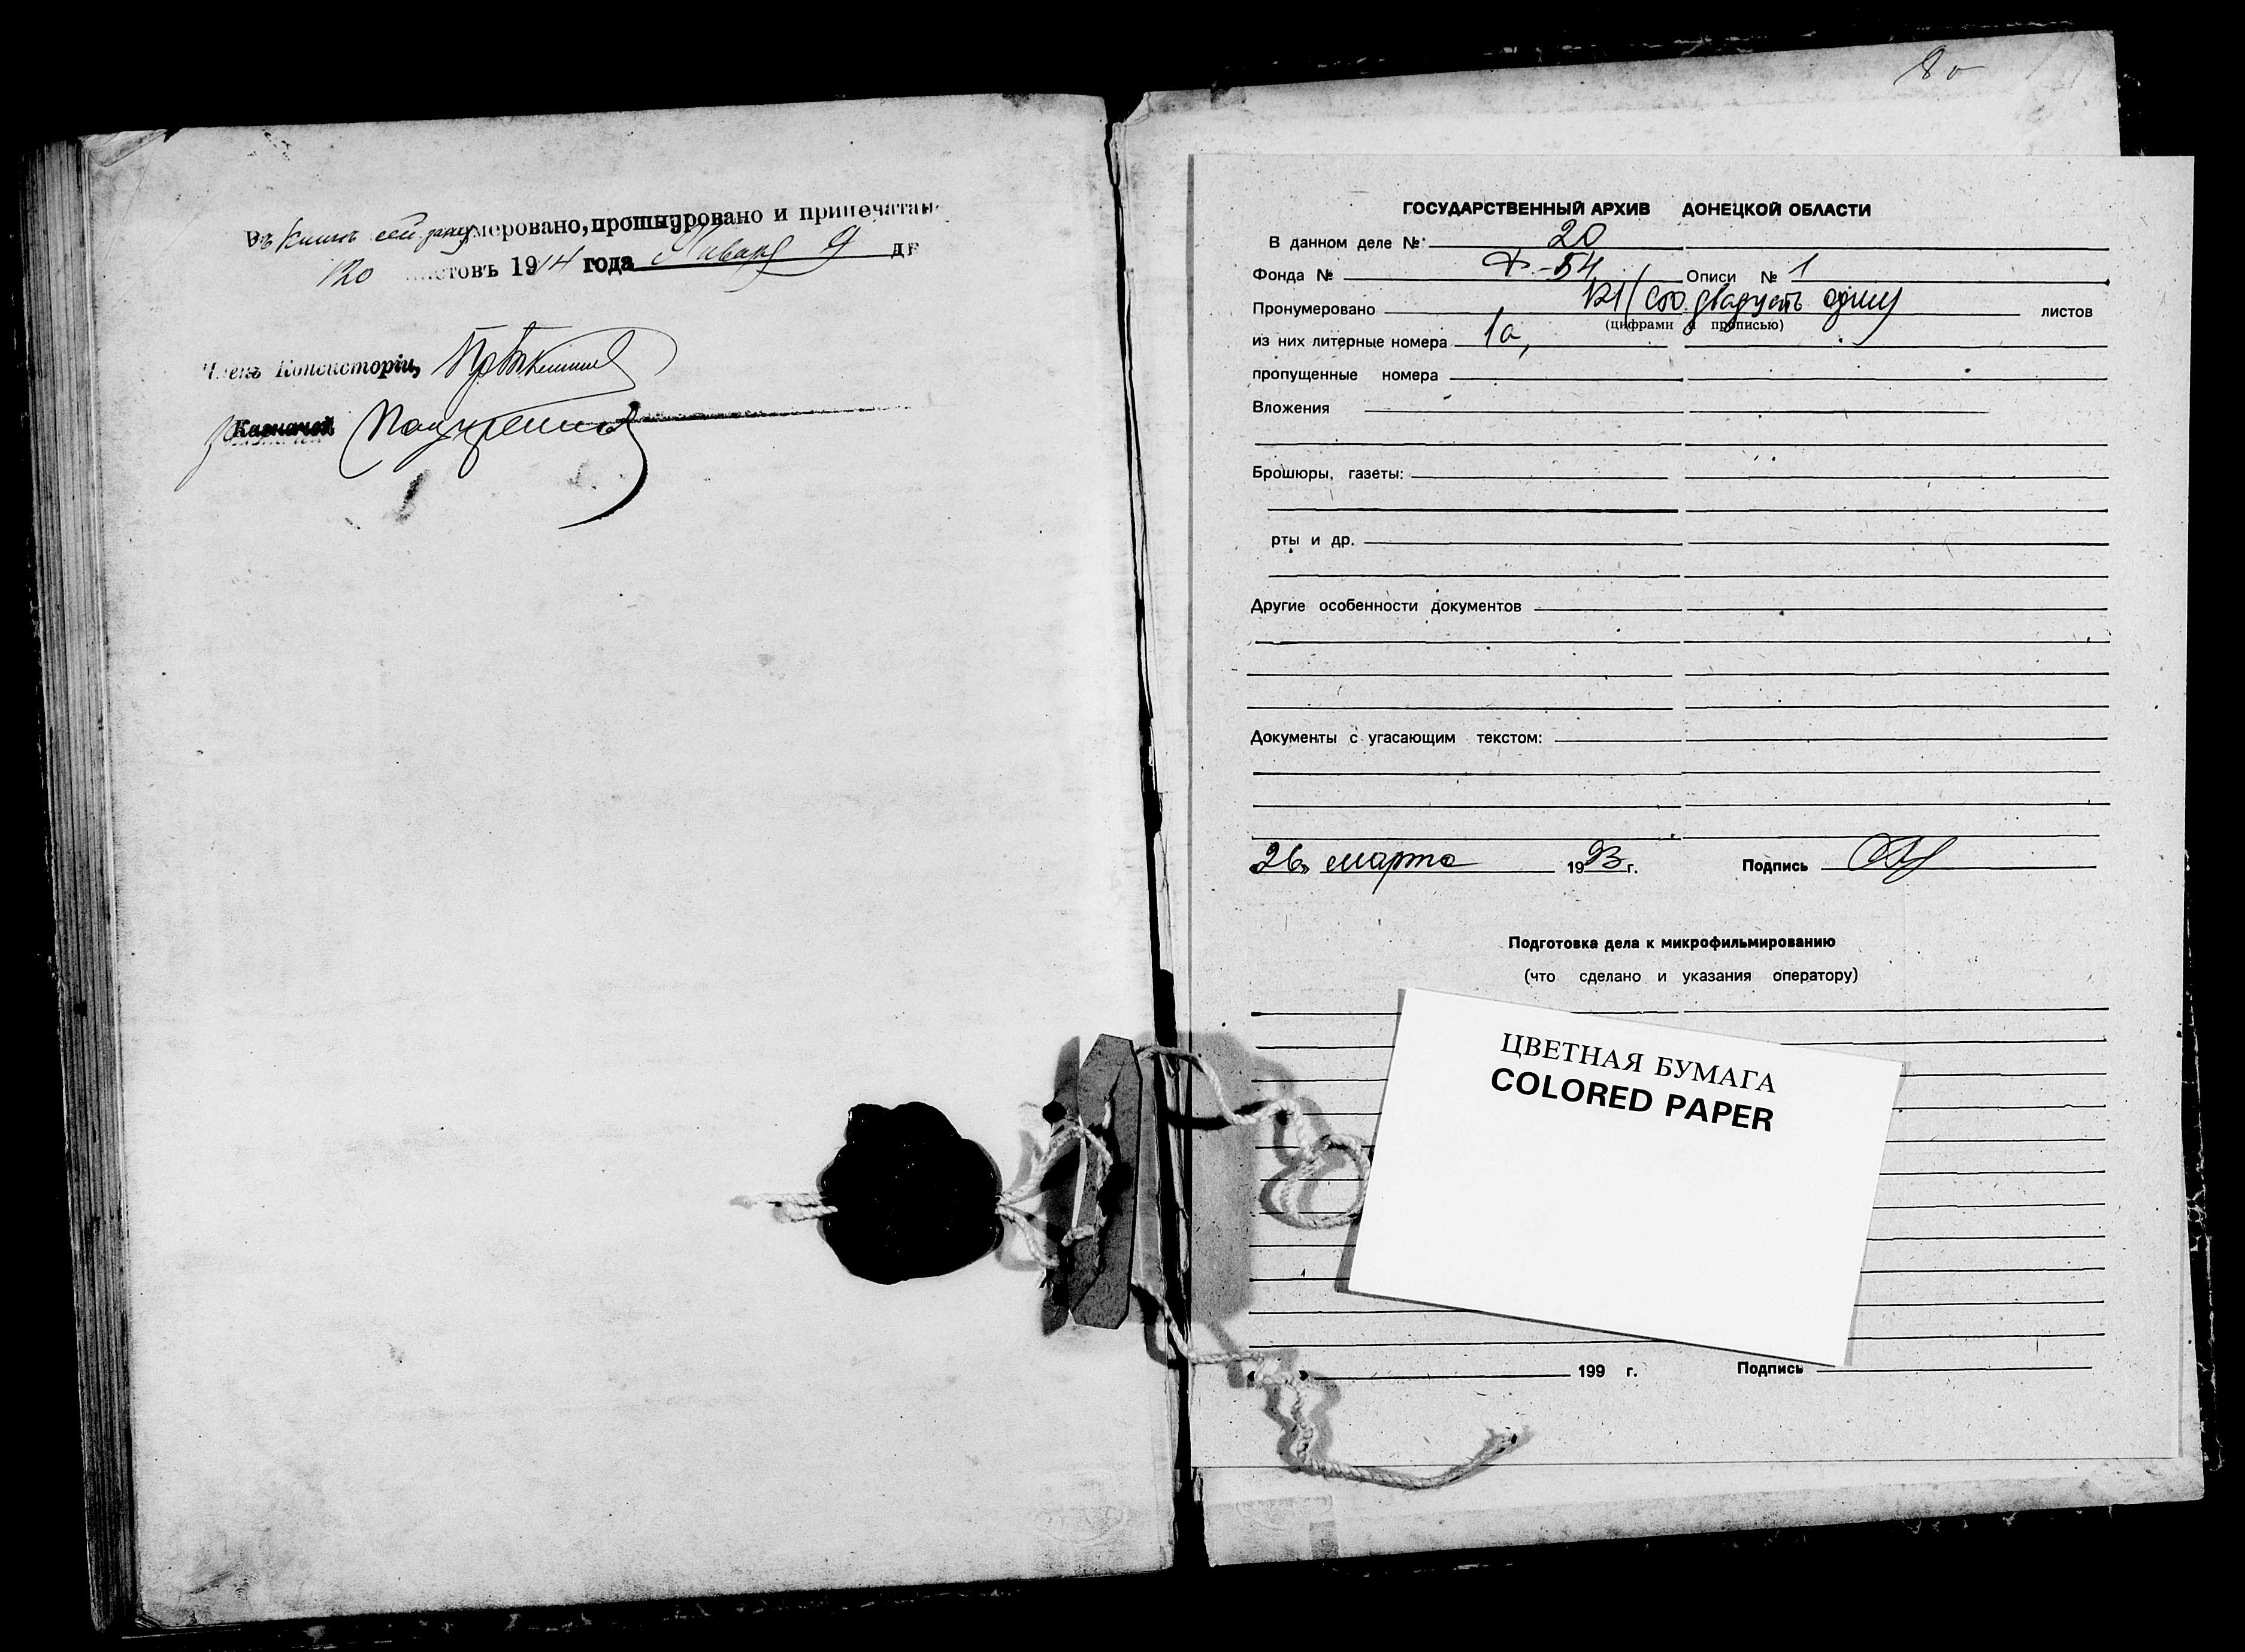 Въ Книгѣ сей занумеровано, прошнуровано и припечатан
120 листовъ 1914 года Января 9 дн
Членъ Консисторіи,
Казначей
80
ГОСУДАРСТВЕННЫЙ АРХИВ ДОНЕЦКОЙ ОБЛАСТИ
В данном деле № 20
Фонда № Ф-54 Описи № 1
Пронумеровано 121 (сто двадцать один) листов
(цифрами и прописью)
из них литерные номера 1а,
пропущенные номера
Вложения
Брошюры, газеты:
рты и др.
Другие особенности документов
Документы с угасающим текстом:
26 марта 1993 г. Подпись
Подготовка дела к микрофильмированию
(что сделано и указания оператору)
ЦВЕТНАЯ БУМАГА
COLORED PAPER
199 г. Подпись